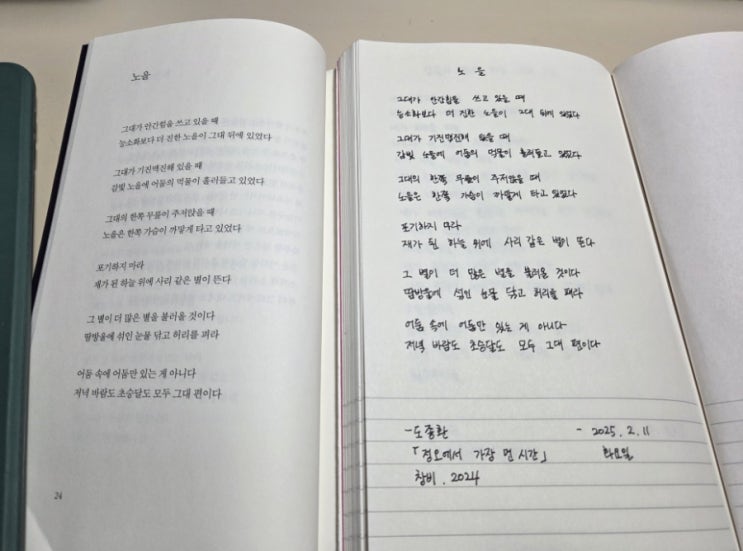 노을
그대가 안간힘을 쓰고 있을 때
능소화보다 더 진한 노을이 그대 뒤에 있었다
그대가 기진맥진해 있을 때
감빛 노을에 어둠의 먹물이 흘러들고 있었다
그대의 한쪽 무릎이 주저앉을 때
노을은 한쪽 가슴이 까맣게 타고 있었다
포기하지 마라
재가 된 하늘 위에 사리 같은 별이 뜬다
그 별이 더 많은 별을 불러올 것이다
땀방울에 섞인 눈물 닦고 허리를 펴라
어둠 속에 어둠만 있는 게 아니다
저녁 바람도 초승달도 모두 그대 편이다
24
노을
그대가 안간힘을 쓰고 있을 때
능소화보다 더 진한 노을이 그대 뒤에 있었다
그대가 기진맥진해 있을 때
감빛 노을에 어둠의 먹물이 흘러들고 있었다
그대의 한쪽 무릎이 주저앉을 때
노을은 한쪽 가슴이 까맣게 타고 있었다
포기하지 마라
재가 된 하늘 위에 사리 같은 별이 뜬다
그 별이 더 많은 별을 불러올 것이다
땀방울에 섞인 눈물 닦고 허리를 펴라
어둠 속에 어둠만 있는 게 아니다
저녁 바람도 초승달도 모두 그대 편이다
- 도종환
「정오에서 가장 먼 시간」
창비. 2024
- 2025. 2. 11
화요일